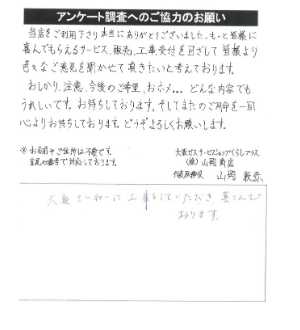 アンケート調査へのご協力のお願い
当店をご利用下さり本当にありがとうございました。もっと皆様に
喜んでもらえるサービス、販売、工事受付を目ざして皆様より
色々なご意見を聞かせて頂きたいと考えております。
おしかり、注意、今後のご希望、おホメ...どんな内容でも
うれしいです。お待ちしております。そしてまたのご用命を一同
心よりお待ちしております。どうぞよろしくお願いします。
※お名前やご住所は不要です。
大阪ガスサービスショップくらしプラス
(株)山岡商店
代表取締役 山岡
大変 に工事をしていただき、喜んで
おります。